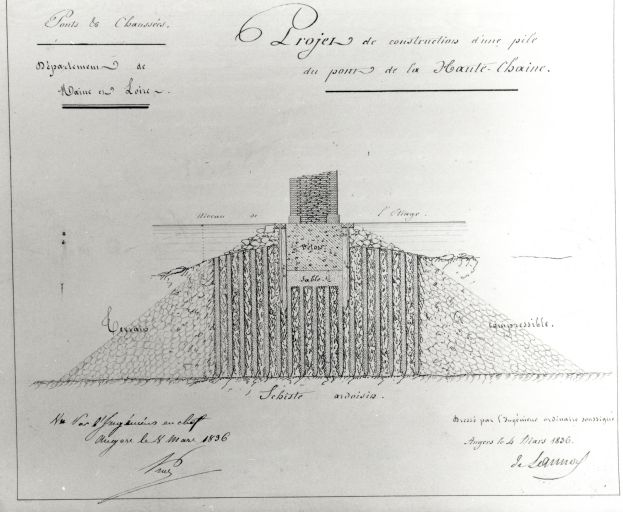 Ponts & Chaussées.
Département de
Maine et Loire.
Projet de construction d'une pile
du pont de la Haute-Chaîne.
Niveau de l'Etiage.
Béton
Sable
Terrain compressible.
Schiste ardoisier.
Vu Par l'Ingénieur en chef
Angers le 8 Mars 1836
Dressé par l'Ingénieur ordinaire soussigné
Angers le 4 Mars 1836.
de Lannoy